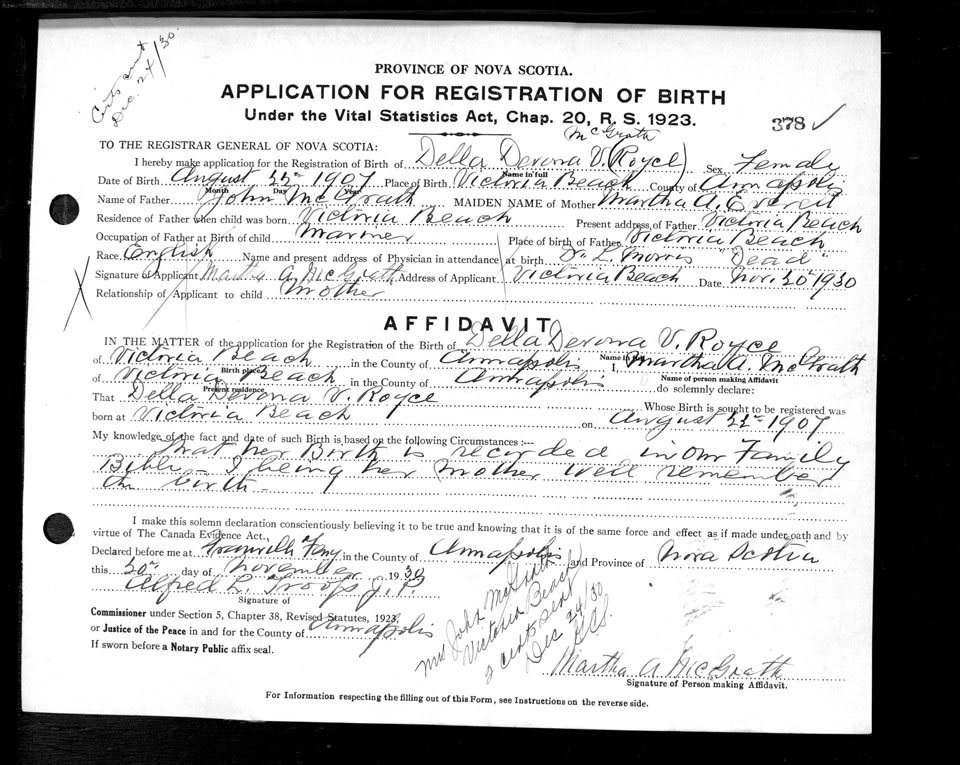 Certs sent
Dec. 24/30
PROVINCE OF NOVA SCOTIA.
APPLICATION FOR REGISTRATION OF BIRTH
Under the Vital Statistics Act, Chap. 20, R. S. 1923.
378 ✓
McGrath
TO THE REGISTRAR GENERAL OF NOVA SCOTIA:
I hereby make application for the Registration of Birth of Della Devona V. (Royce) Sex Female
Name in full
Date of Birth August 22nd 1907 Place of Birth Victoria Beach County of Annapolis
Month Day Year
Name of Father John McGrath MAIDEN NAME of Mother Martha A. Everett
Residence of Father when child was born Victoria Beach Present address of Father Victoria Beach
Occupation of Father at Birth of child Mariner Place of birth of Father Victoria Beach
Race English Name and present address of Physician in attendance at birth Dr. L. Morris "Dead"
Signature of Applicant Martha A. McGrath Address of Applicant Victoria Beach Date Nov. 20th 1930
Relationship of Applicant to child Mother
AFFIDAVIT
IN THE MATTER of the application for the Registration of the Birth of Della Devona V. Royce
Name in full
of Victoria Beach in the County of Annapolis I, Martha A. McGrath
Birth place Name of person making Affidavit
of Victoria Beach in the County of Annapolis do solemnly declare:
Present residence
That Della Devona V. Royce Whose Birth is sought to be registered was
born at Victoria Beach on August 22nd 1907
My knowledge of the fact and date of such Birth is based on the following Circumstances :—
That her Birth is recorded in our Family
Bible – I being her mother well remember
the birth –
I make this solemn declaration conscientiously believing it to be true and knowing that it is of the same force and effect as if made under oath and by
virtue of The Canada Evidence Act.
Declared before me at Granville Ferry in the County of Annapolis and Province of Nova Scotia
this 20th day of November 1930
Alfred L. Troop J.P.
Signature of
Commissioner under Section 5, Chapter 38, Revised Statutes, 1923,
or Justice of the Peace in and for the County of Annapolis
If sworn before a Notary Public affix seal.
Mrs John McGrath
Victoria Beach
2 certs sent
Dec 24/30
Martha A McGrath
Signature of Person making Affidavit.
For Information respecting the filling out of this Form, see Instructions on the reverse side.